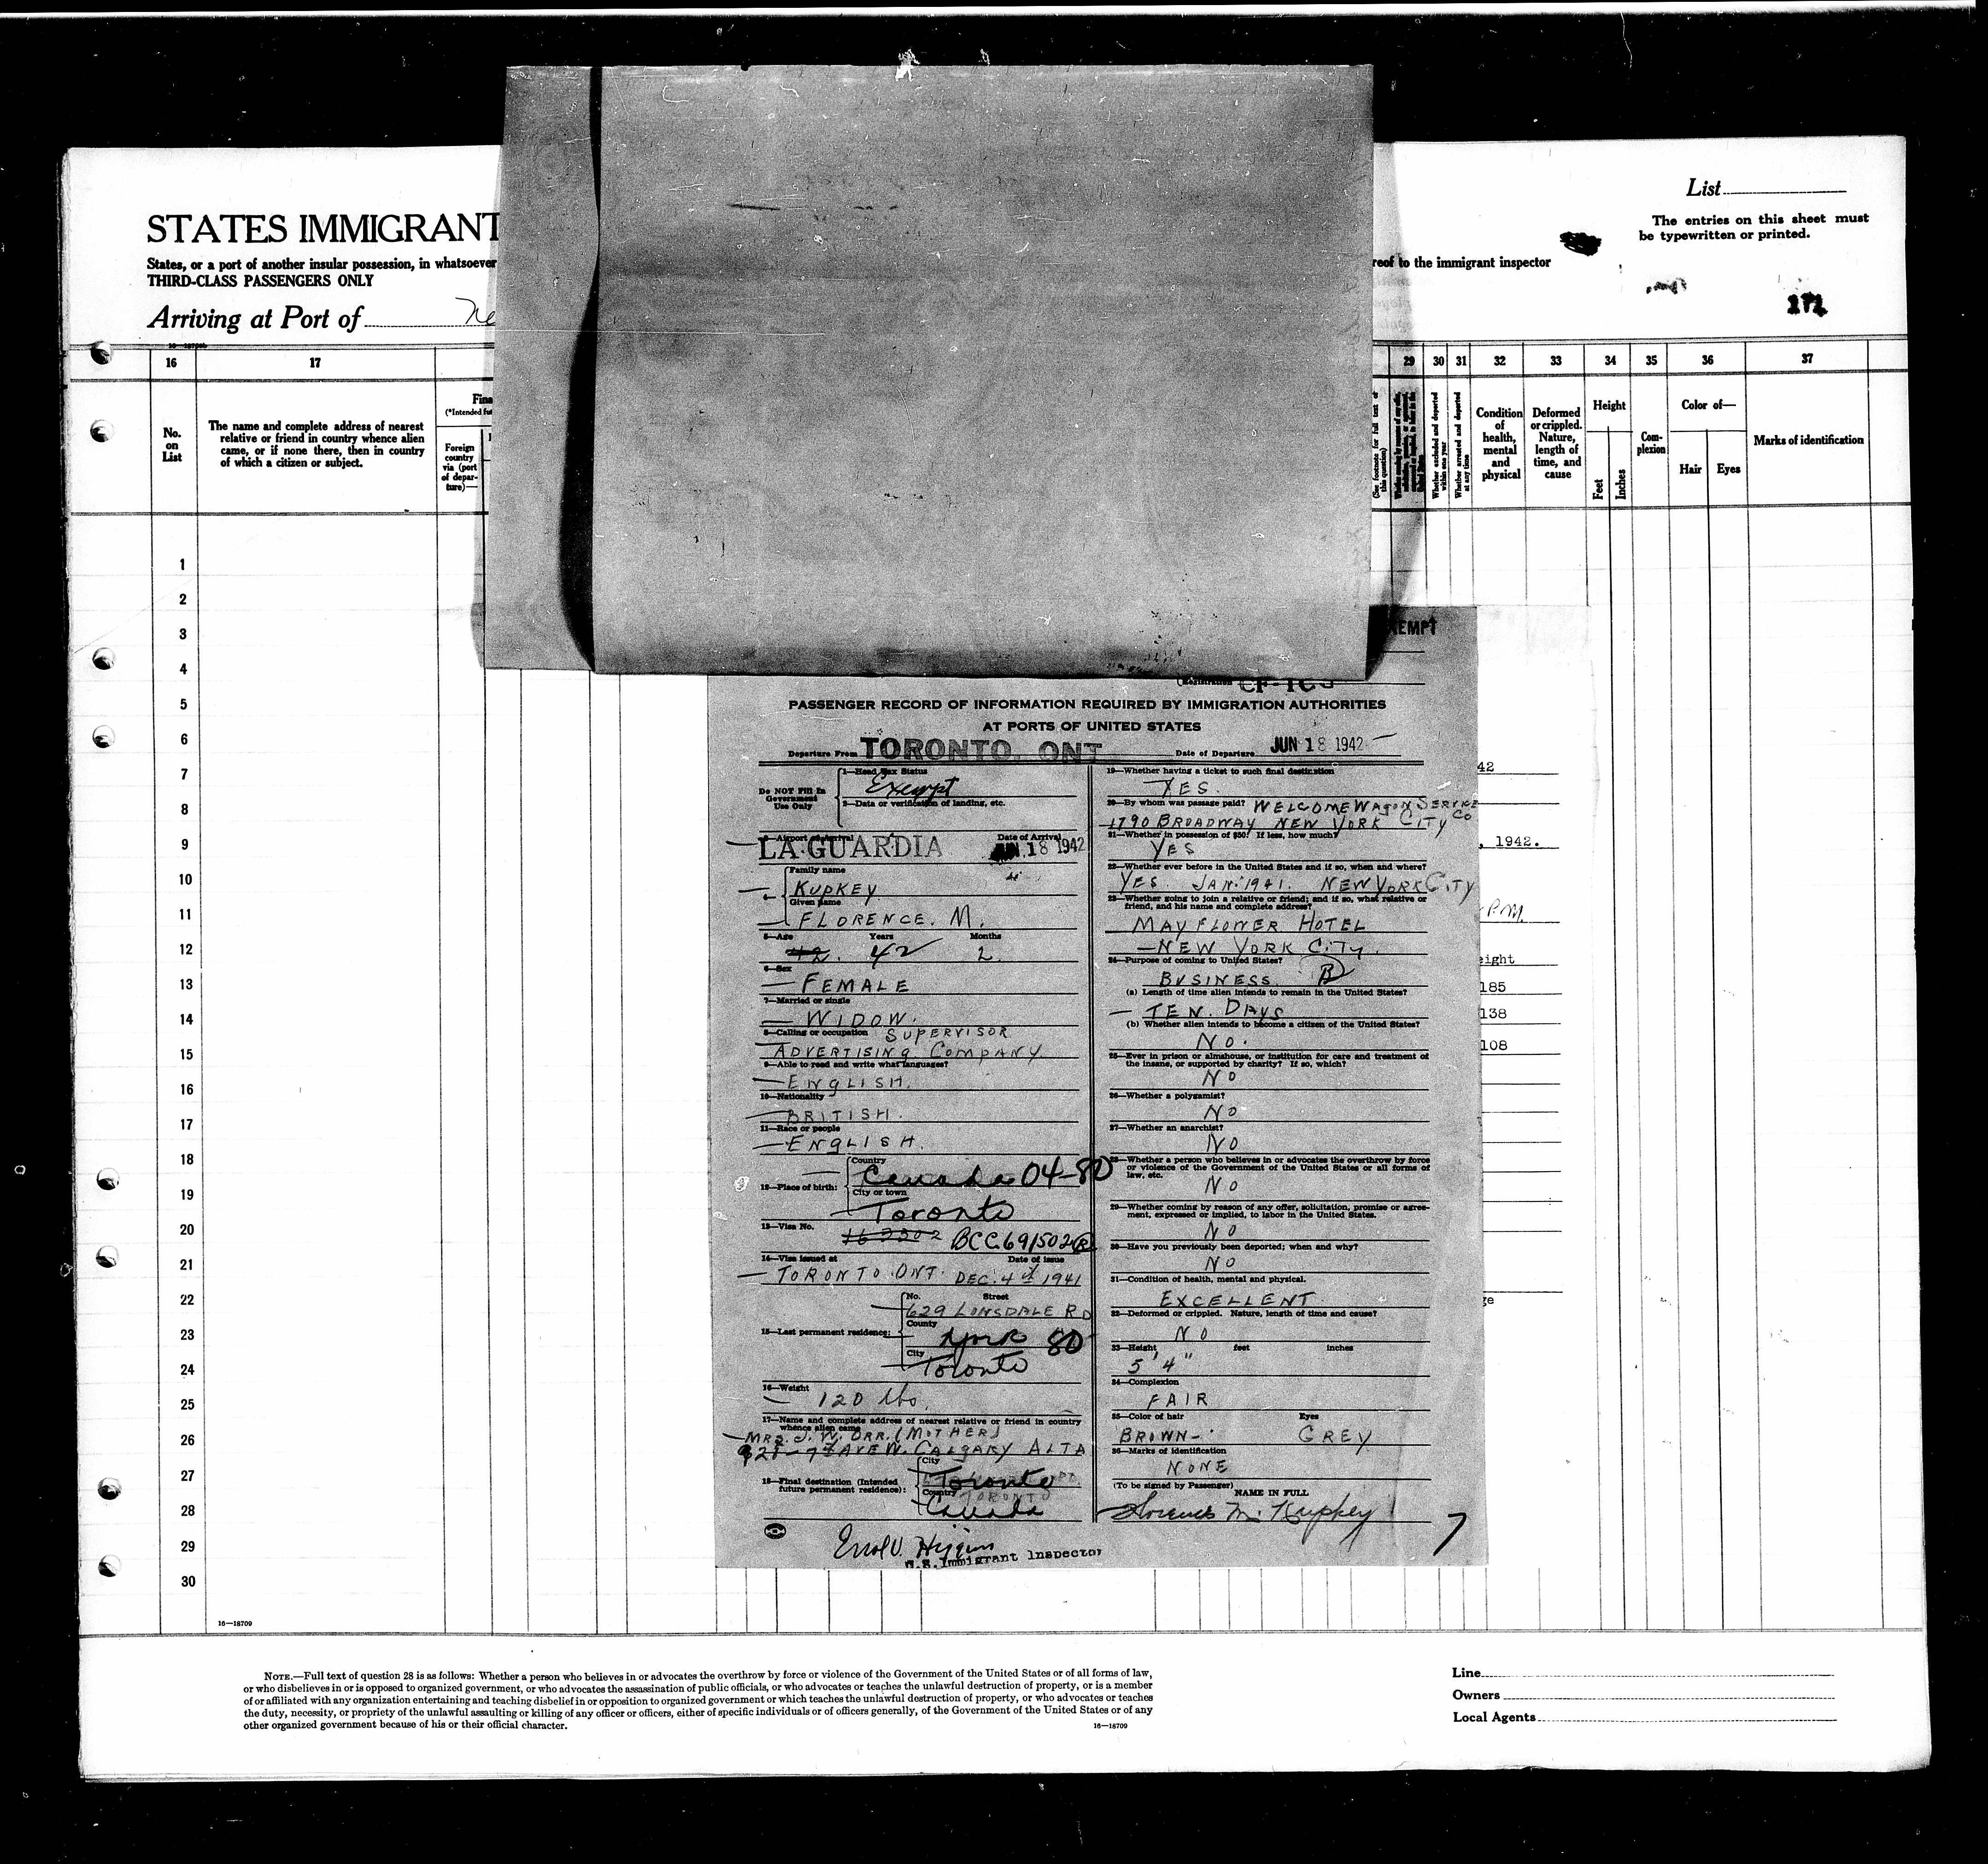 List
The entries on this sheet must
be typewritten or printed.
STATES IMMIGRANT
States, or a port of another insular possession, in whatsoever
reof to the immigrant inspector
THIRD-CLASS PASSENGERS ONLY
Arriving at Port of Ne
171
16 17 29 30 31 32 33 34 35 36 37
No.
on
List
The name and complete address of nearest
relative or friend in country whence alien
came, or if none there, then in country
of which a citizen or subject.
Fina
(*Intended fut
Foreign
country
via (port
of depar-
ture)—
(See footnote for full text of
this question)
Whether excluded and deported
within one year
Whether arrested and deported
at any time
Condition
of
health,
mental
and
physical
Deformed
or crippled.
Nature,
length of
time, and
cause
Height
Feet
Inches
Com-
plexion
Color of—
Hair Eyes
Marks of identification
1
2
3
4
5
6
7
8
9
10
11
12
13
14
15
16
17
18
19
20
21
22
23
24
25
26
27
28
29
30
EMPT
PASSENGER RECORD OF INFORMATION REQUIRED BY IMMIGRATION AUTHORITIES
AT PORTS OF UNITED STATES
Departure From TORONTO, ONT Date of Departure JUN 18 1942
Do NOT Fill In
Government
Use Only
1—Head Tax Status
Exempt
2—Data or verification of landing, etc.
3—Airport of Arrival Date of Arrival
LA GUARDIA JUN 18 1942
4—
Family name
KUPKEY
Given name
FLORENCE. M.
5—Age Years Months
42. 42 2
6—Sex
FEMALE
7—Married or single
WIDOW.
8—Calling or occupation SUPERVISOR
ADVERTISING COMPANY
9—Able to read and write what languages?
ENGLISH.
10—Nationality
BRITISH.
11—Race or people
ENGLISH.
12—Place of birth:
Country
Canada 04-80
City or town
Toronto
13—Visa No.
BCC691502
14—Visa issued at Date of Issue
TORONTO. ONT. DEC. 4th 1941
15—Last permanent residence:
No. Street
629 LONSDALE RD
County
York 80
City
Toronto
16—Weight
120 lbs.
17—Name and complete address of nearest relative or friend in country
whence alien came
MRS. J. W. ORR. (MOTHER)
7th AVE W. CALGARY ALTA
18—Final destination (Intended
future permanent residence):
City
Toronto
Country
Canada
19—Whether having a ticket to such final destination
YES.
20—By whom was passage paid? WELCOME WAGON SERVICE
1790 BROADWAY NEW YORK CITY Co
21—Whether in possession of $50? If less, how much?
YES
22—Whether ever before in the United States and if so, when and where?
YES. JAN. 1941. NEW YORK CITY
23—Whether going to join a relative or friend; and if so, what relative or
friend, and his name and complete address?
MAYFLOWER HOTEL
NEW YORK CITY.
24—Purpose of coming to United States?
BUSINESS B
(a) Length of time alien intends to remain in the United States?
TEN. DAYS
(b) Whether alien intends to become a citizen of the United States?
NO.
25—Ever in prison or almshouse, or institution for care and treatment of
the insane, or supported by charity? If so, which?
NO
26—Whether a polygamist?
NO
27—Whether an anarchist?
NO
28—Whether a person who believes in or advocates the overthrow by force
or violence of the Government of the United States or all forms of
law, etc.
NO
29—Whether coming by reason of any offer, solicitation, promise or agree-
ment, expressed or implied, to labor in the United States.
NO
30—Have you previously been deported; when and why?
NO
31—Condition of health, mental and physical.
EXCELLENT
32—Deformed or crippled. Nature, length of time and cause?
NO
33—Height feet inches
5' 4"
34—Complexion
FAIR
35—Color of hair Eyes
BROWN- GREY
36—Marks of identification
NONE
(To be signed by Passenger)
NAME IN FULL
Florence M. Kupkey
7
Errol V. Higgins
U.S. Immigrant Inspector
42
, 1942.
P.M.
eight
185
138
108
ge
16—18709
NOTE.—Full text of question 28 is as follows: Whether a person who believes in or advocates the overthrow by force or violence of the Government of the United States or of all forms of law,
or who disbelieves in or is opposed to organized government, or who advocates the assassination of public officials, or who advocates or teaches the unlawful destruction of property, or is a member
of or affiliated with any organization entertaining and teaching disbelief in or opposition to organized government or which teaches the unlawful destruction of property, or who advocates or teaches
the duty, necessity, or propriety of the unlawful assaulting or killing of any officer or officers, either of specific individuals or of officers generally, of the Government of the United States or of any
other organized government because of his or their official character.
16—18709
Line
Owners
Local Agents